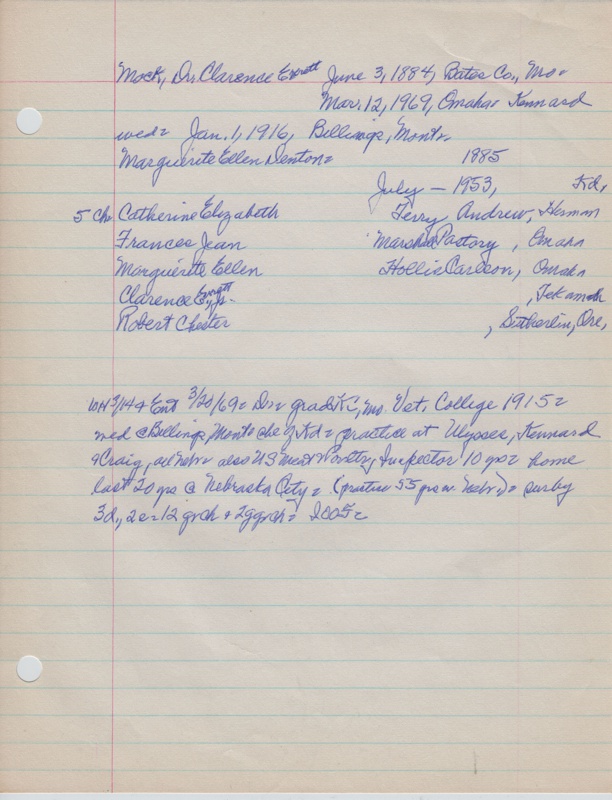 Mock, Dr. Clarence Everett June 3, 1884, Bates Co., Mo=
Mar. 12, 1969, Omaha= Kennard
wed= Jan. 1, 1916, Billings, Mont=
Marguerite Ellen Denton= 1885
July — 1953, Kd,
5 Ch Catherine Elizabeth Terry Andrew, Herman
Frances Jean Marshall Pastory, Omaha
Marguerite Ellen Hollis Carlson, Omaha
Clarence Everett, Jr. , Tekamah
Robert Chester , Sutherlin, Ore,
3/14 & Ent 3/20/69= Dr= grad KC, Mo. Vet. College 1915=
wed @ Billings, Mont= she of Kd= practice at Ulysses, Kennard
& Craig, all Nebr= also US Meat & Poultry Inspector 10 yrs= home
last 20 yrs @ Nebraska City= (practice 55 yrs in Nebr)= surby
3d, 2s= 12 grch & 2 ggrch=